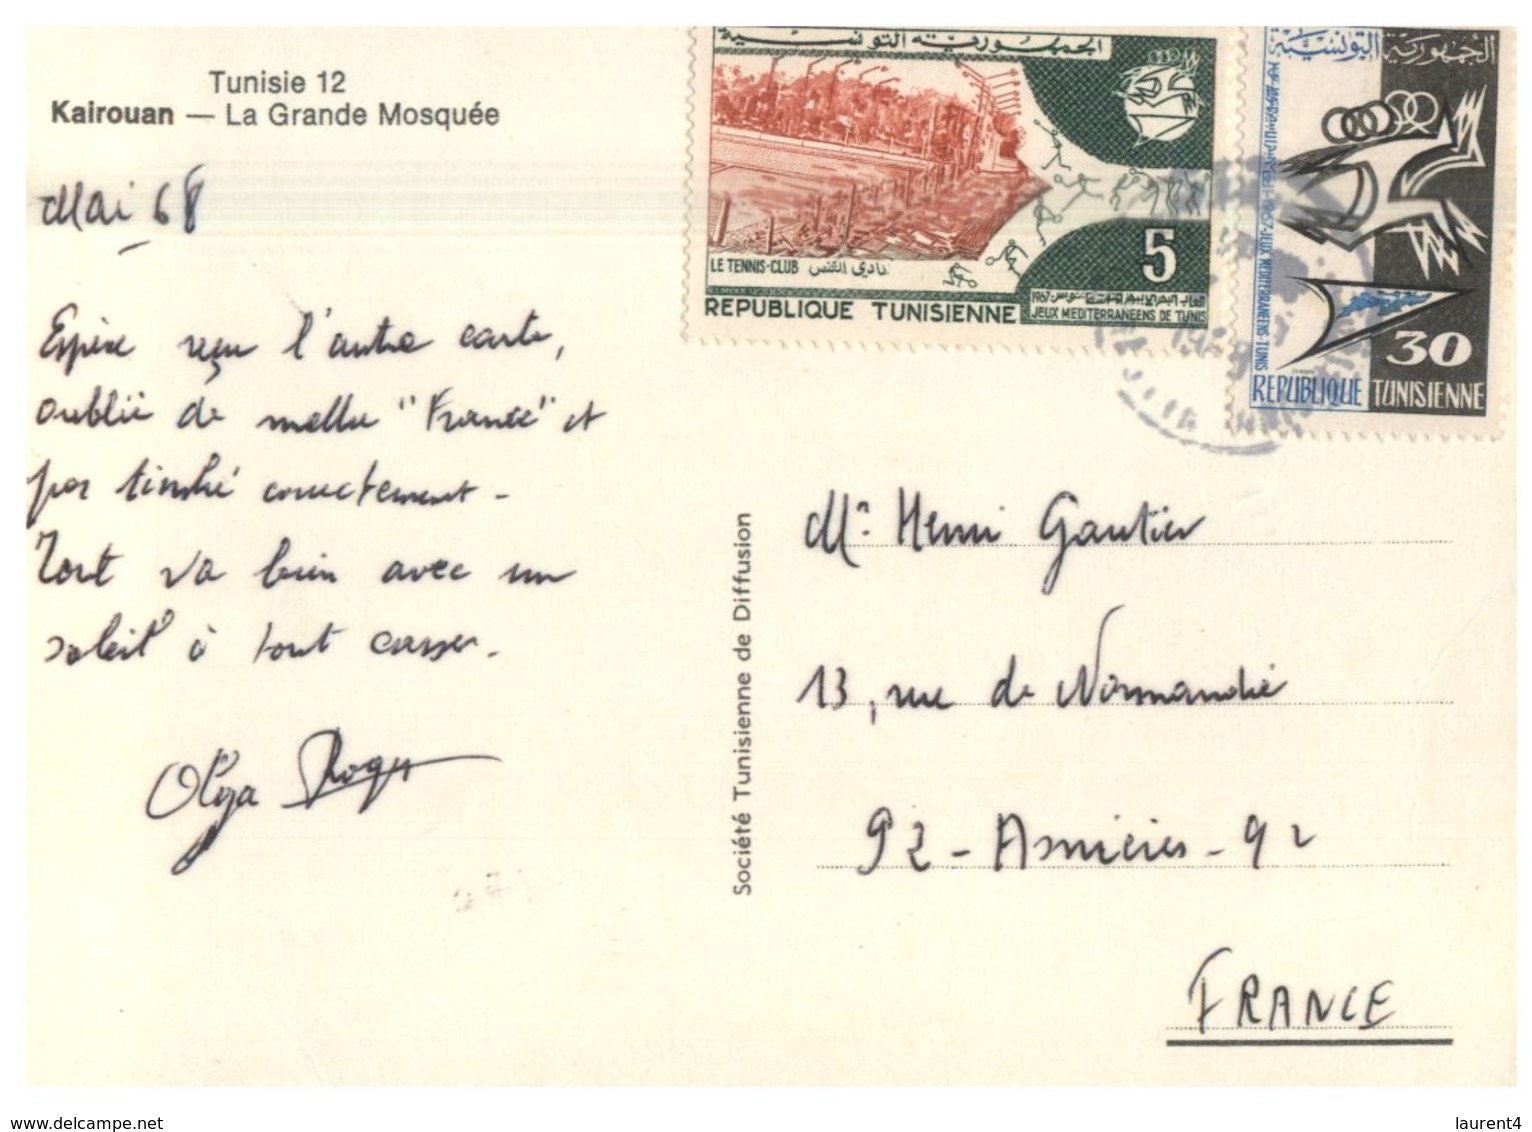 Tunisie 12
Kairouan — La Grande Mosquée
Mai 68
Espère reçu l'autre carte,
oublié de mettre "France" et
pas timbré correctement -
Tout va bien avec un
soleil à tout casser.
Olga Roger
Société Tunisienne de Diffusion
الجمهورية التونسية
LE TENNIS-CLUB نادي التنس
5
REPUBLIQUE TUNISIENNE
1967
JEUX MEDITERRANEENS DE TUNIS
الجمهورية التونسية
1967-JEUX MEDITERRANEENS-TUNIS
30
REPUBLIQUE TUNISIENNE
Mr Henri Gautier
13, rue de Normandie
92 - Asnières - 92
FRANCE
www.delcampe.net
laurent4